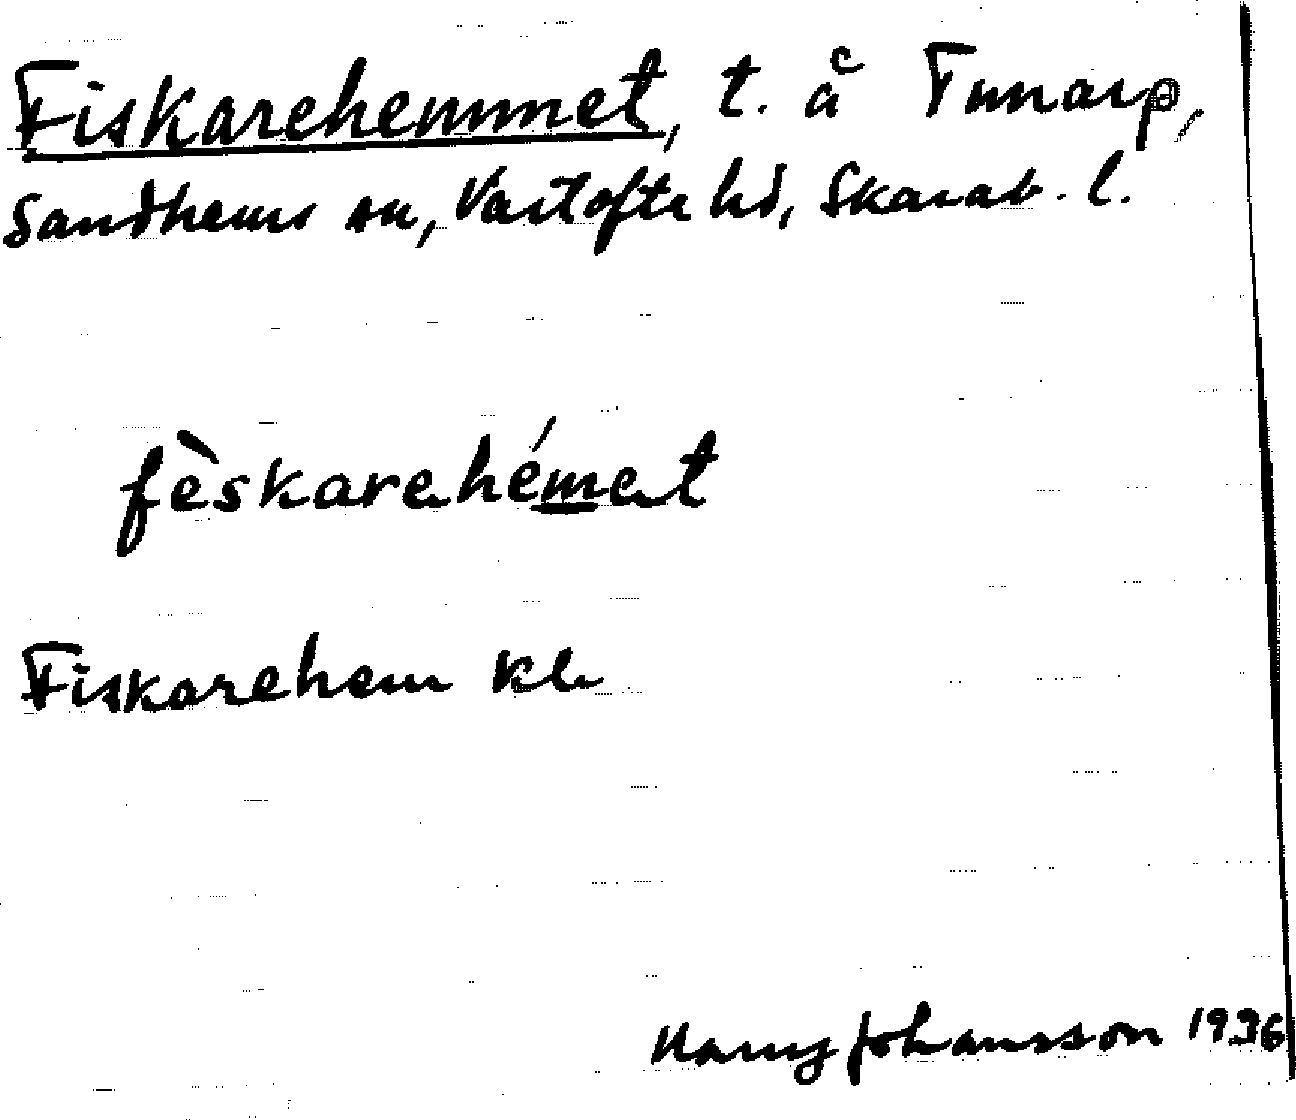 Fiskarehemmet, t. å Tunarp,
Sandhems sn, Vartofta hd, Skarab. l.
fèskarehémet
Fiskarehem kl.
Harry Johansson 1936